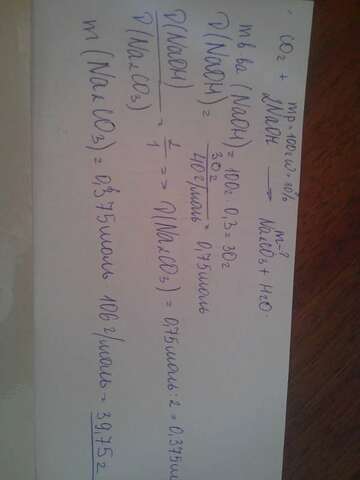 mр=100г w=30% m-?
CO2 + 2NaOH → Na2CO3 + H2O.
m в-ва (NaOH) = 100г · 0,3 = 30г
ν(NaOH) = 30г / 40г/моль = 0,75моль
ν(NaOH) / ν(Na2CO3) = 2/1 => ν(Na2CO3) = 0,75моль : 2 = 0,375м
m (Na2CO3) = 0,375моль · 106г/моль = 39,75г